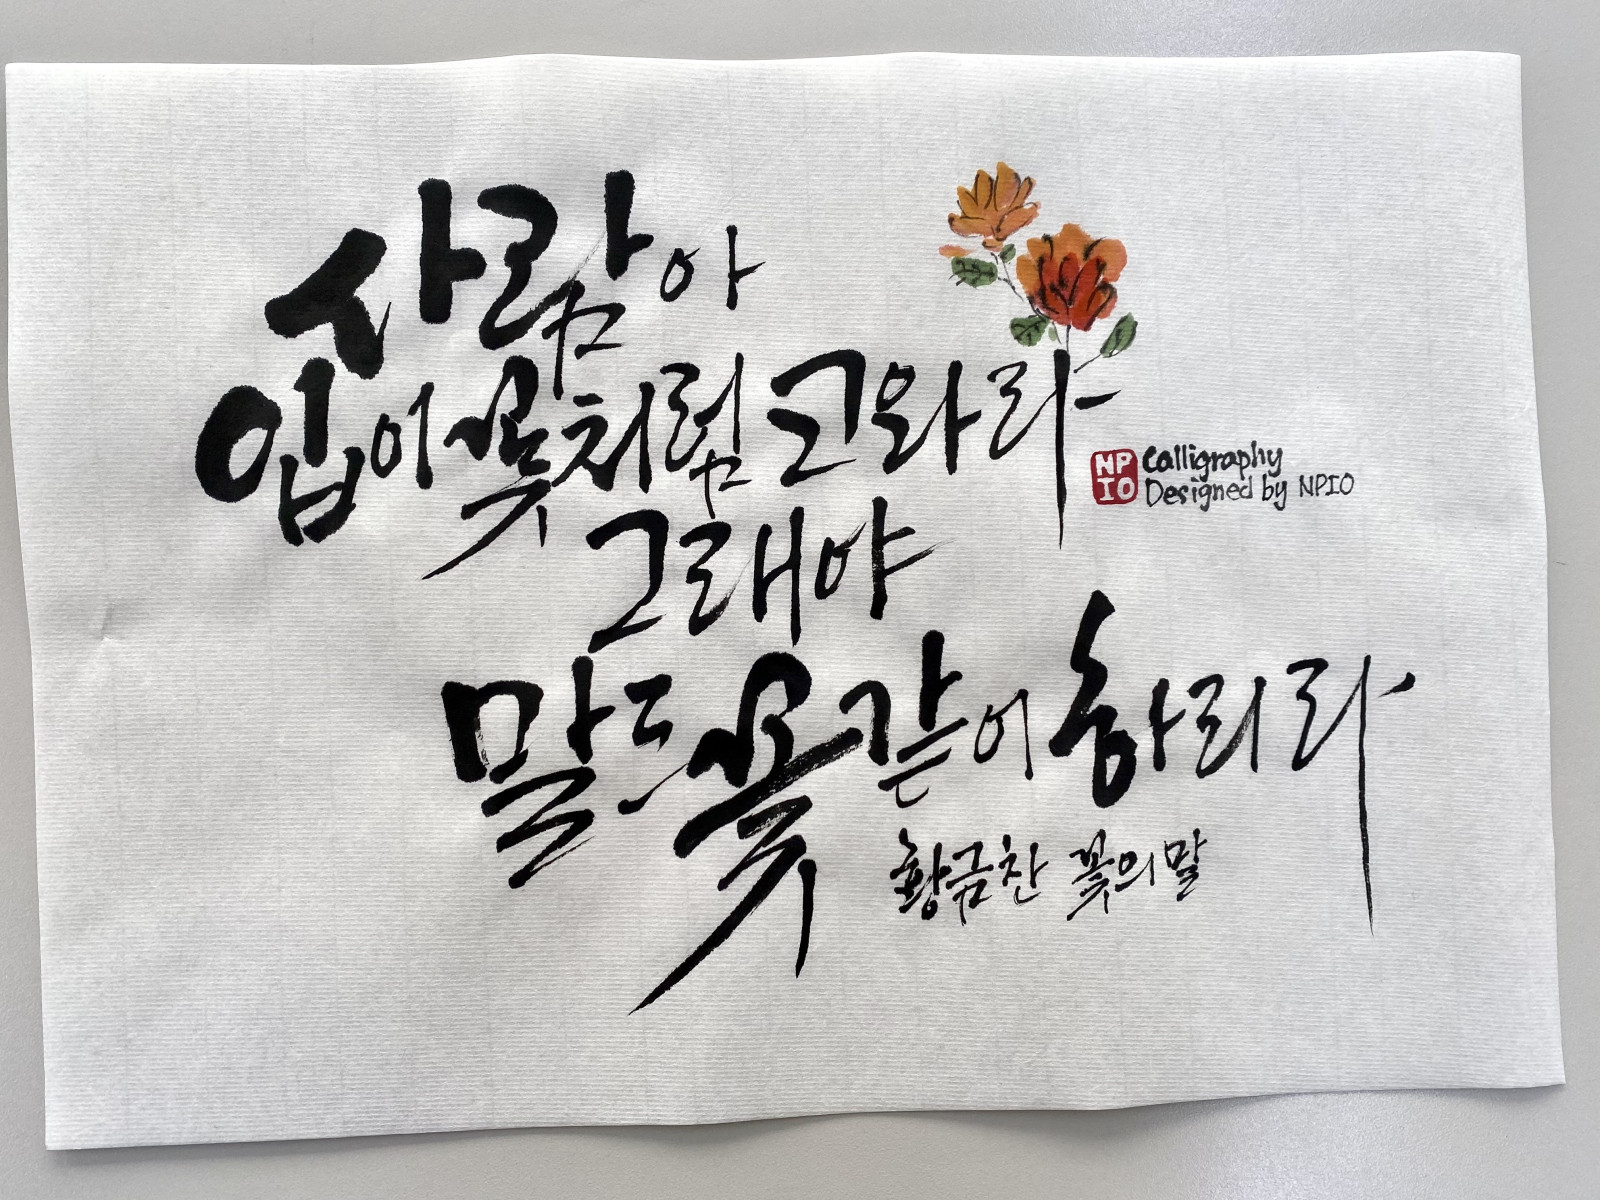 사람아
입이 꽃처럼 고와라
NP
IO
Calligraphy
Designed by NPIO
그래야
말도 꽃같이 하리라
황금찬 꽃의말